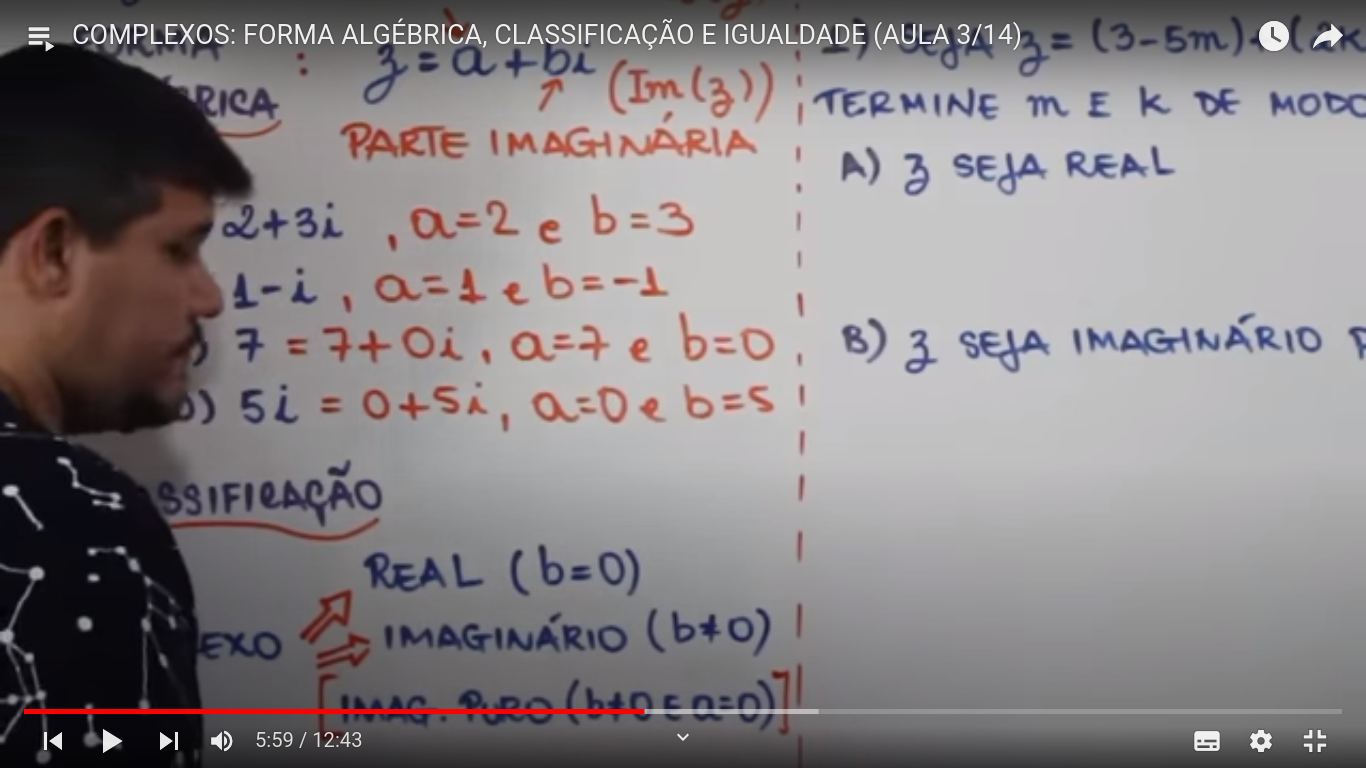 COMPLEXOS: FORMA ALGÉBRICA, CLASSIFICAÇÃO E IGUALDADE (AULA 3/14)
: z = a + bi
(Im(z))
PARTE IMAGINÁRIA
2+3i , a=2 e b=3
1-i , a=1 e b=-1
) 7 = 7+0i , a=7 e b=0
) 5i = 0+5i , a=0 e b=5
SSIFICAÇÃO
REAL (b=0)
EXO IMAGINÁRIO (b≠0)
[IMAG. PURO (b≠0 E a=0)]
SEJA z = (3-5m)
TERMINE m E K DE MODO
A) z SEJA REAL
B) z SEJA IMAGINÁRIO
5:59 / 12:43